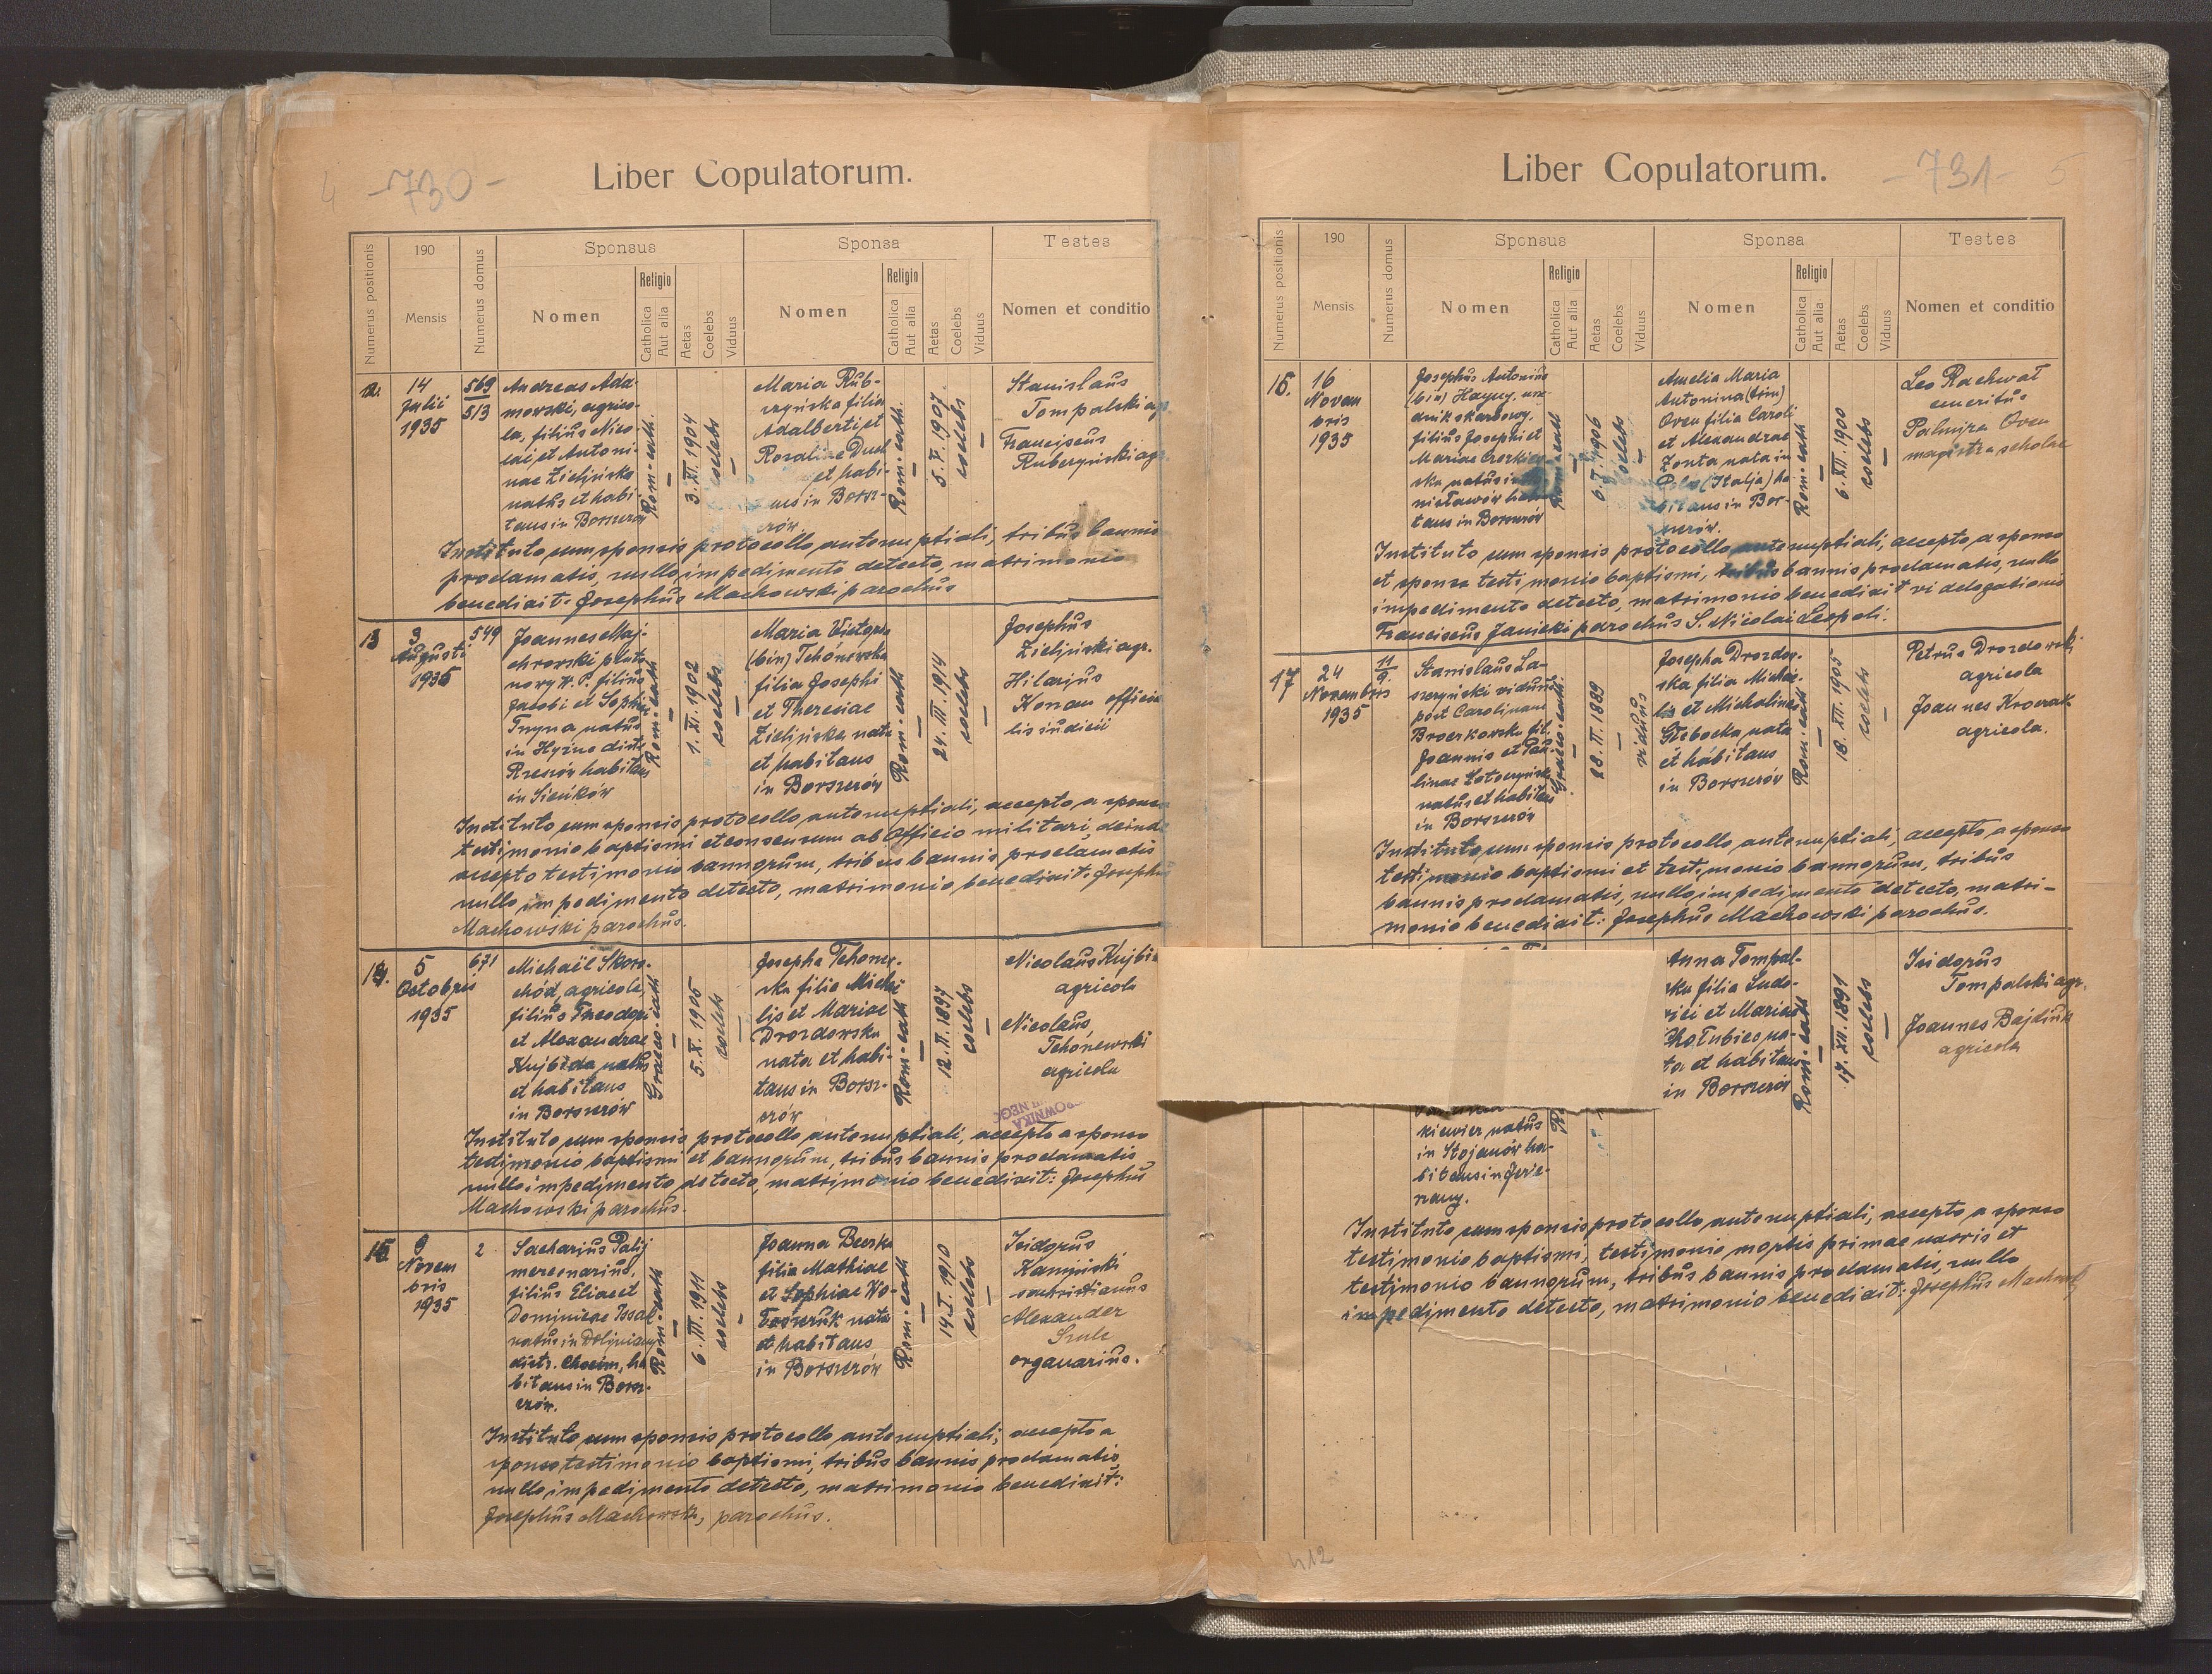 4 -730-
Liber Copulatorum.
Numerus positionis
190
Mensis
Numerus domus
Sponsus
Nomen
Religio
Catholica
Aut alia
Aetas
Coelebs
Viduus
Sponsa
Nomen
Religio
Catholica
Aut alia
Aetas
Coelebs
Viduus
Testes
Nomen et conditio
14
Julii
1935
569
513
Andreas Ada-
mowski, agrico-
la, filius Nico-
lai et Antoni-
nae Zielińska
natus et habi-
tans in Borszczów
Rom-cath.
3.XI.1904
coelebs
Maria Rub-
czyńska filia
Adalberti et
Rozaliae Duch
et habi-
tans in Borsz-
czów
Rom-cath.
5.V.1907
coelebs
Stanislaus
Tompalski agr.
Franciscus
Ruberzyński agr.
Instituto cum sponsis protocollo antenuptiali, tribus bannis
proclamatis, nullo impedimento detecto, matrimonio
benedixit: Josephus Machowski parochus
13
3
Augusti
1935
549
Joannes Maj-
chrowski pluto-
nowy W.P. filius
Jacobi et Sophiae
Tryna natus
in Hyżne distr.
Rzeszów habitans
in Sieńków
Rom-cath
1.XI.1902
coelebs
Maria Victoria
(bin) Tchórzewska
filia Josephi
et Theresiae
Zielińska nata
et habitans
in Borszczów
Rom-cath
24.III.1914
coelebs
Josephus
Zieliński agr.
Hilarius
Konan officia-
lis iudicii
Instituto cum sponsis protocollo antenuptiali, accepto a sponso
testimonio baptismi et consensum ab Officio militari, deinde
accepto testimonio bannorum, tribus bannis proclamatis
nullo impedimento detecto, matrimonio benedixit: Josephus
Machowski parochus.
14.
5
Octobris
1935
671
Michaël Skoro-
chód, agricola,
filius Theodori
et Alexandrae
Kujbida natus
et habitans
in Borszczów
Graeco-cath
5.X.1905
coelebs
Josepha Tchorze-
ska filia Micha
lis et Mariae
Drozdowska
nata et habi-
tans in Borsz-
czów
Rom-cath
12.II.1897
coelebs
Nicolaus Kujbida
agricola
Nicolaus
Tchórzewski
agricola
Instituto cum sponsis protocollo antenuptiali, accepto a sponso
testimonio baptismi et bannorum, tribus bannis proclamatis
nullo impedimento detecto, matrimonio benedixit: Josephus
Machowski parochus.
15
9
Novem
bris
1935
2
Sacharius Palij
mercenarius,
filius Eliae et
Dominicae Issak
natus in Doliniany
distr. Chocim, ha
bitans in Borsz-
czów.
Rom-cath
6.III.1911
coelebs
Joanna Beerska
filia Mathiae
et Sophiae Wo-
łoszczuk nata
et habitans
in Borszczów
Rom-cath
14.I.1910
coelebs
Isidorus
Kamiński
Alexander
Szulc
organarius.
Instituto cum sponsis protocollo antenuptiali, accepto a
sponso testimonio baptismi, tribus bannis proclamatis,
nullo impedimento detecto, matrimonio benedixit:
Josephus Machowski, parochus.
Liber Copulatorum.
-731- 5
Numerus positionis
190
Mensis
Numerus domus
Sponsus
Nomen
Religio
Catholica
Aut alia
Aetas
Coelebs
Viduus
Sponsa
Nomen
Religio
Catholica
Aut alia
Aetas
Coelebs
Viduus
Testes
Nomen et conditio
16.
16
Novem
bris
1935
Josephus Antonius
(bin) Hayny, urz-
dnik skarbowy,
filius Josephi et
Mariae
ska natus in
nisławów habi
tans in Borszczów
Rom-cath
6.I.1906
coelebs
Amelia Maria
Antonina (trin)
Oven filia Caroli
et Alexandrae
Zonta nata in
Pola (Italja) ha
bitans in Bor-
szczów.
Rom-cath
6.XII.1900
coelebs
Leo Rachwał
emeritus
Palmira Oven
magistra scholae
Instituto cum sponsis protocollo antenuptiali, accepto a sponso
et sponsa testimonio baptismi, tribus bannis proclamatis, nullo
impedimento detecto, matrimonio benedixit vi delegationis
Franciscus Janicki parochus S. Nicolai Leopoli.
17
24
Novembris
1935
11
9
Stanislaus La-
szczyński viduus
post Carolinam
Broczkowska fil.
Joannis et Pau-
linae
natus et habitans
in Borszczów
Graeco-cath.
28.II.1889
viduus
Josepha Drozdow-
ska filia Micha-
lis et Michalinae
Głębocka nata
et habitans
in Borszczów
Rom-cath
18.XII.1905
coelebs
Petrus Drozdowski
agricola
Joannes Krowiak
agricola.
Instituto cum sponsis protocollo antenuptiali, accepto a sponso
testimonio baptismi et testimonio bannorum, tribus
bannis proclamatis, nullo impedimento detecto, matri-
monio benedixit: Josephus Machowski parochus.
kiewicz natus
in Stojanów ha-
bitans in Jezie-
rzany.
Anna Tompal-
ska filia Ludo-
vici et Mariae
Hołubico na-
ta et habitans
in Borszczów
Rom-cath
17.XII.1891
coelebs
Isidorus
Tompalski agr.
Joannes Bajdiuk
agricola
Instituto cum sponsis protocollo antenuptiali, accepto a sponso
testimonio baptismi, testimonio mortis primae uxoris et
testimonio bannorum, tribus bannis proclamatis, nullo
impedimento detecto, matrimonio benedixit: Josephus Machowski
412